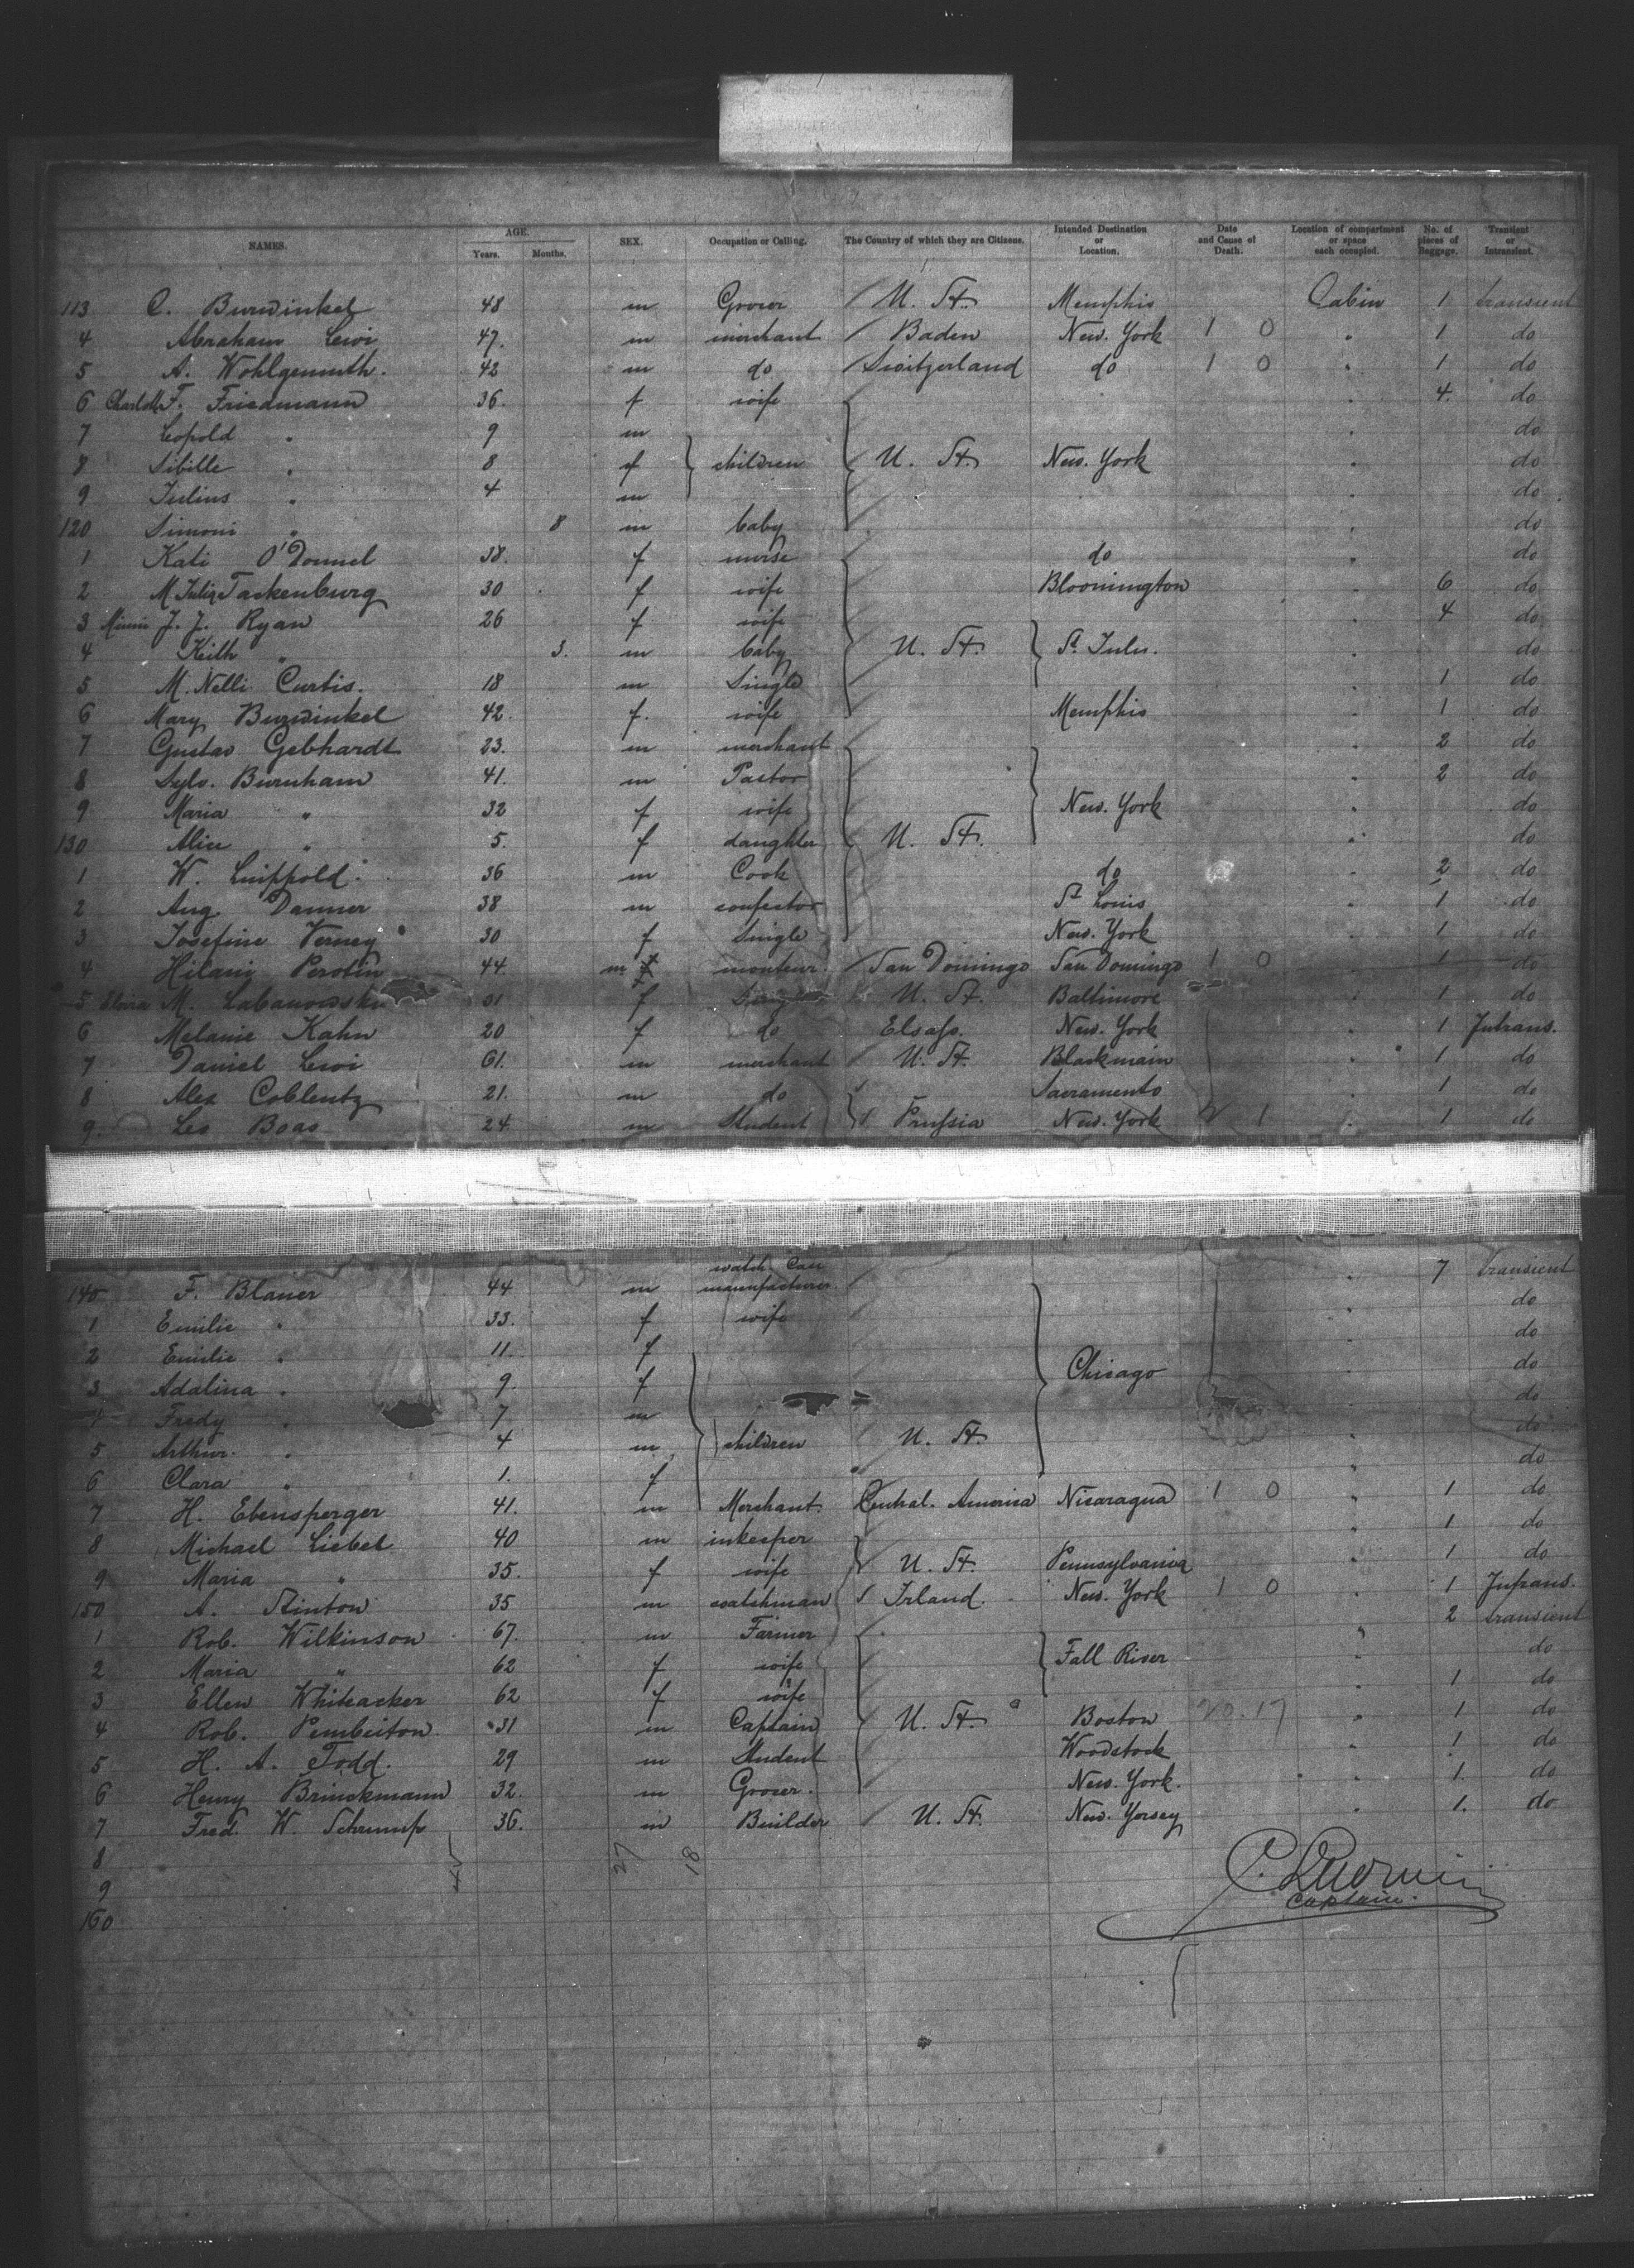 NAMES. AGE. Years. Months. SEX. Occupation or Calling. The Country of which they are Citizens. Intended Destination or Location. Date and Cause of Death. Location of compartment or space each occupied. No. of pieces of Baggage. Transient or Intransient.
113 C. Burwinkel 48 m Grocer U. St. Memphis Cabin 1 transient
4 Abraham Levi 47. m merchant Baden New. York 1 0 " 1 do
5 A. Wohlgemuth. 42 m do Switzerland do 1 0 " 1 do
6 Charlotte F. Friedmann 36. f wife " 4. do
7 Leopold " 9 m " do
8 Sibille " 8 f children U. St. New. York " do
9 Julius " 4 m " do
120 Simoni " 8 m baby " do
1 Kati O'Donnel 38. f nurse do " do
2 M Julia Tackenburg 30 f wife Bloomington 6 do
3 Minnie J. J. Ryan 26 f wife " 4 do
4 Keith " 3. m baby U. St. St. " do
5 M. Nelli Curtis. 18 m Single " 1 do
6 Mary Burwinkel 42. f. wife Memphis " 1 do
7 Gustav Gebhardt 23. m merchant " 2 do
8 Sylv. Burnham 41. m Pastor " 2 do
9 Maria " 32 f wife New. York " do
130 Alice " 5. f daughter U. St. " do
1 W. Luippold. 36 m Cook do " 2 do
2 Aug Danner 38 m confector St Louis " 1 do
3 Josefine Verney 30 f Single New. York " 1 do
4 Hilani Perotin 44. m monteur. San Domingo San Domingo 1 0 1 do
5 M. Labanowska 31 f U. St. Baltimore " 1 do
6 Melanie Kahn 20 f do Elsass. New. York " 1 Intrans.
7 Daniel Levi 61. m merchant U. St. Blackmain " 1 do
8 Alex Coblentz 21. m do Sacramento " 1 do
9. Leo Boas 24 m Student Prussia New. York 2 1 " 1 do
140 F. Blauer 44 m watch Case manufacturer " 7 transient
1 Emilie " 33. f wife " do
2 Emilie " 11. f " do
3 Adalina " 9. f Chicago " do
4 Fredy " 7 m do
5 Arthur. " 4 m children U. St. " do
6 Clara " 1. f " do
7 H. Ebensperger 41. m Merchant. Central. America Nicaragua 1 0 " 1 do
8 Michael Liebel 40 m inkeeper " 1 do
9 Maria " 35. f wife U. St. Pennsylvania " 1 do
150 A. Stinton 35 m watchman Irland. New. York 1 0 " 1 Intrans.
1 Rob. Wilkinson 67. m Farmer " 2 transient
2 Maria " 62 f wife Fall River " do
3 Ellen Whiteacker 62 f wife " 1 do
4 Rob. Pemberton. 31 m Captain U. St. Boston 20. 17 " 1 do
5 H. A. Todd. 29 m Student Woodstock " 1 do
6 Henry Brinckmann 32. m Grocer. New. York. " 1. do
7 Fred. W. Schrumpf 36. m Builder U. St. New. Yersey " 1. do
8 27 18
9
160
Captain.